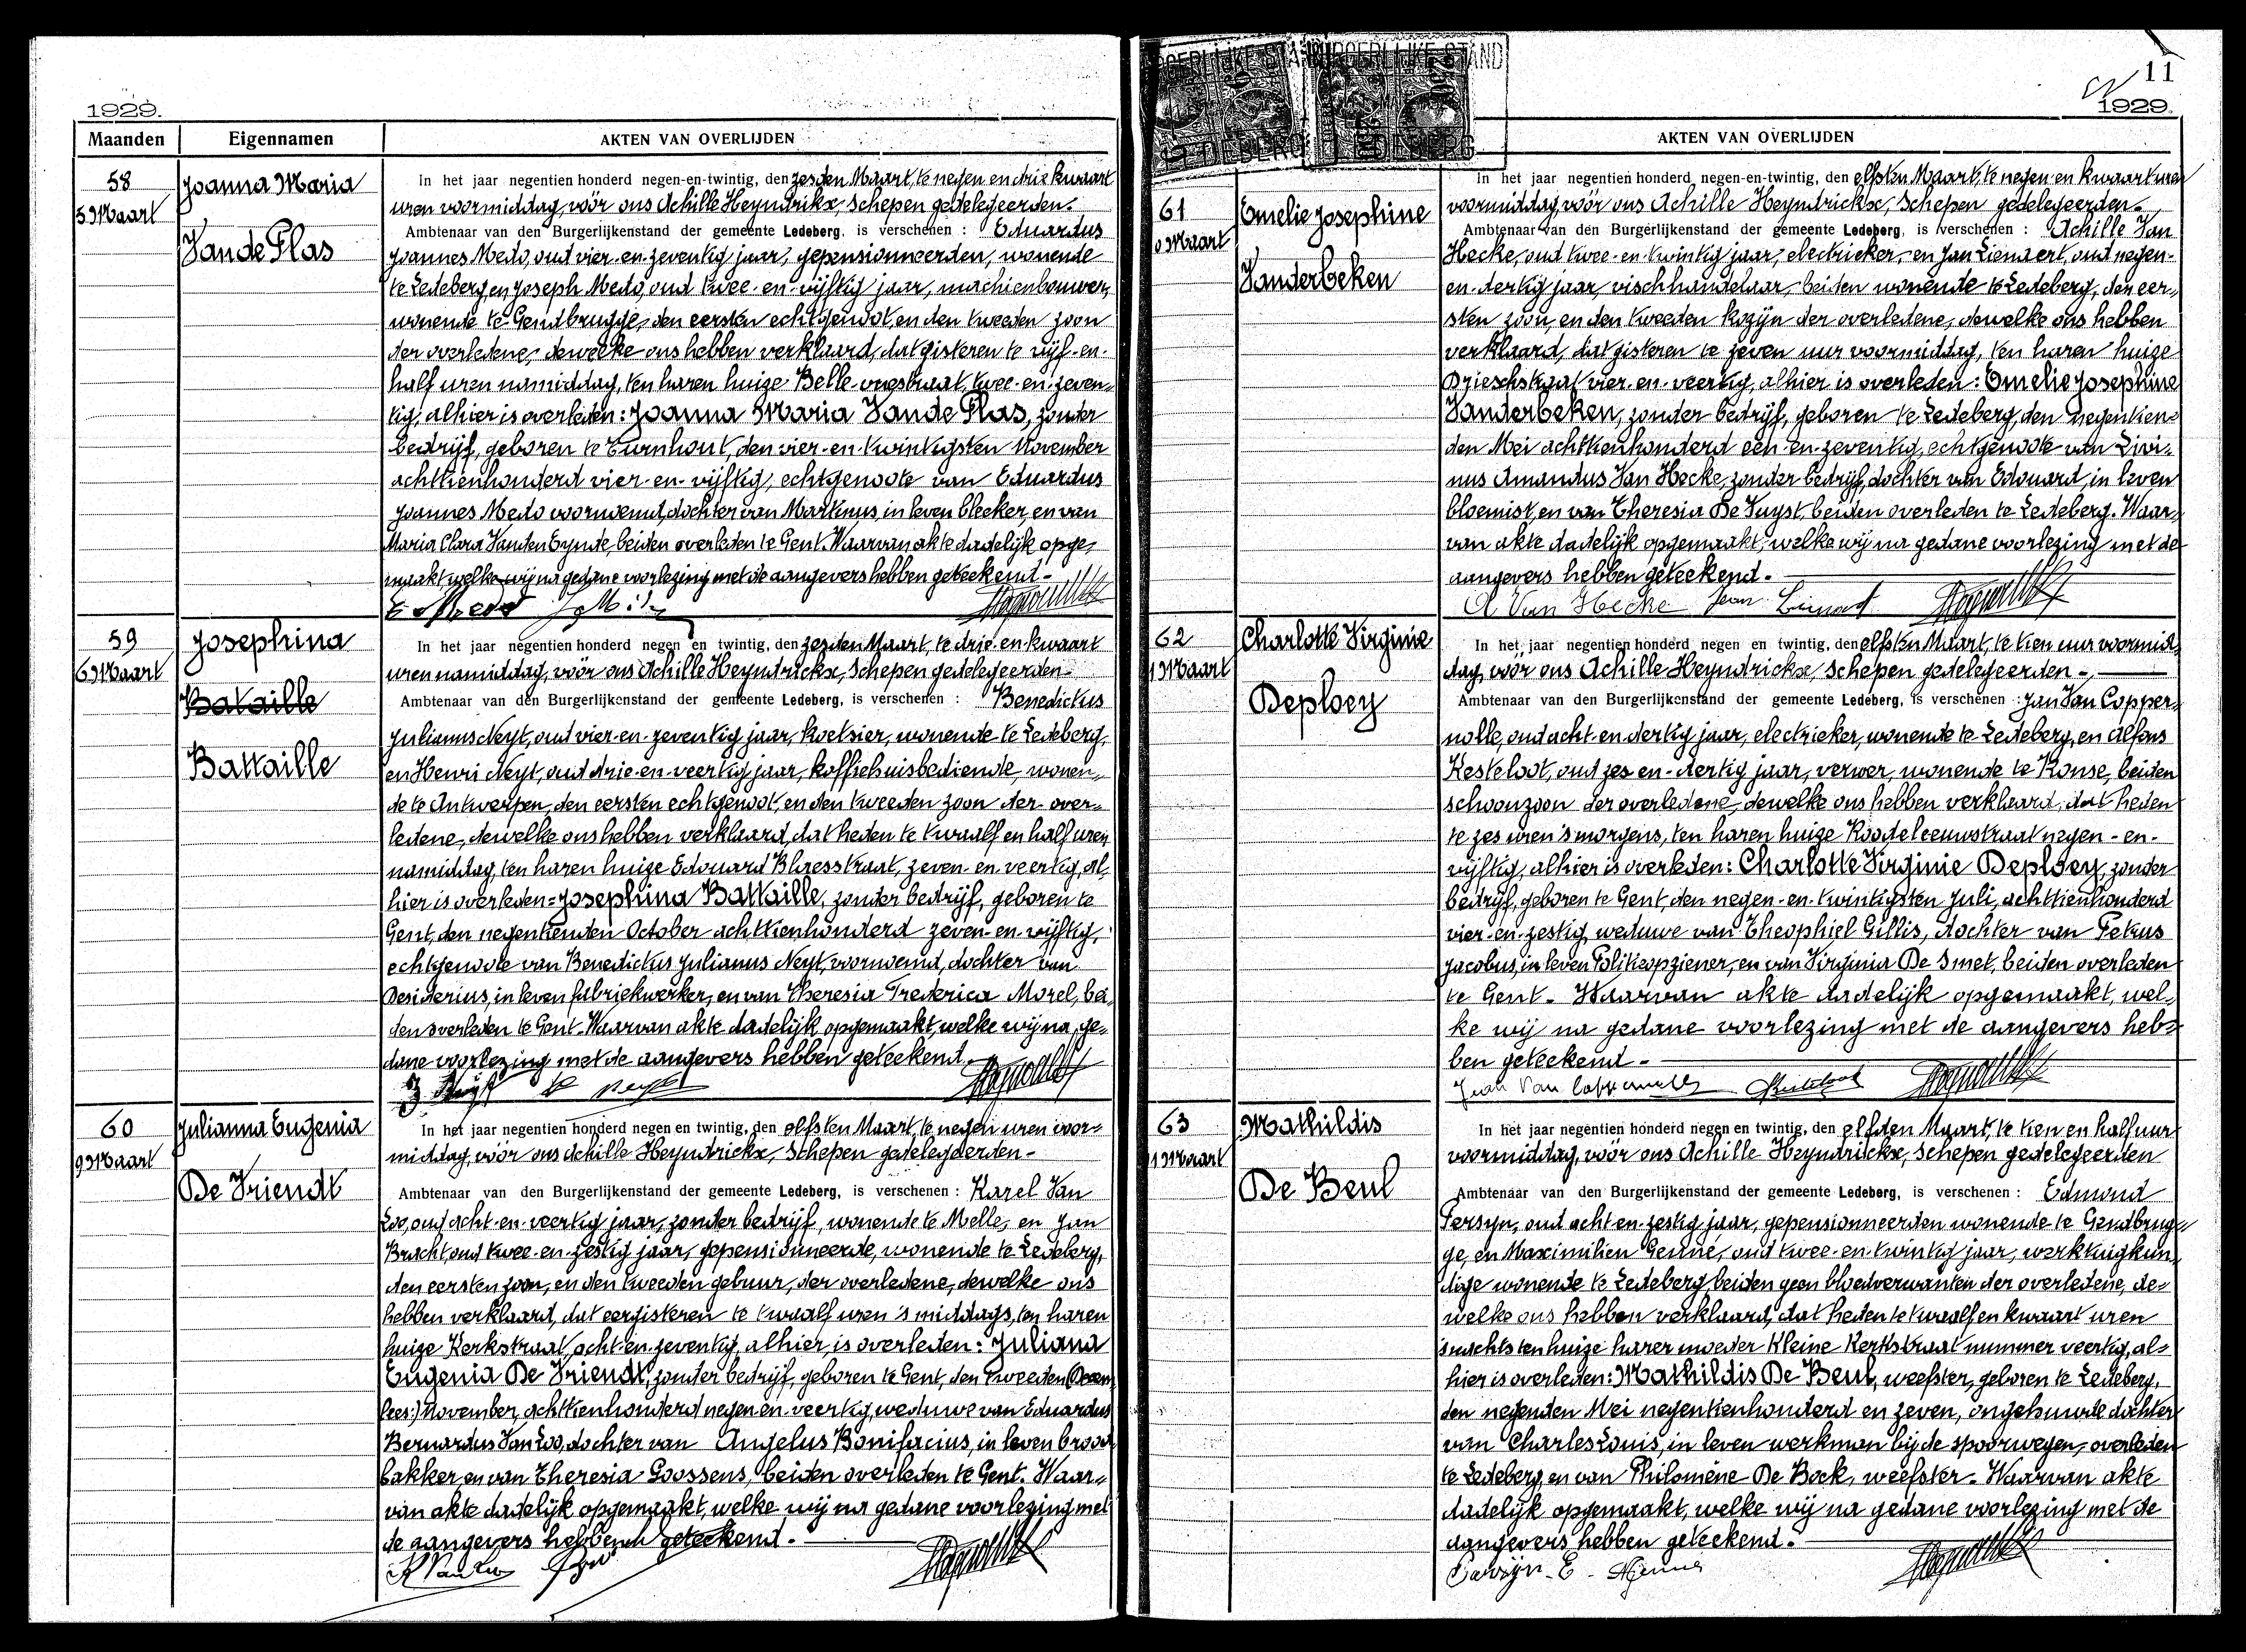 1929.
Maanden
Eigennamen
AKTEN VAN OVERLIJDEN
58
5 Maart
Joanna Maria
Van de Plas
In het jaar negentien honderd negen-en-twintig, den zesden Maart, te negen en drie kwaart
uren voormiddag, vóór ons Achille Heyndrickx, Schepen gedelegeerden.
Ambtenaar van den Burgerlijkenstand der gemeente Ledeberg, is verschenen : Eduardus
Joannes Medo, oud vier-en-zeventig jaar, gepensionneerden, wonende
te Ledeberg, en Joseph Medo, oud twee-en-vijftig jaar, machienbouwer,
wonende te Gendbrugge, den eersten echtgenoot, en den tweeden zoon
der overledene, dewelke ons hebben verklaard, dat gisteren te vijf-en-
half uren namiddag, ten haren huize Belle-vuestraat, twee-en-zeven-
tig, alhier is overleden: Joanna Maria Van de Plas, zonder
bedrijf, geboren te Turnhout, den vier-en-twintigsten November
achttienhonderd vier-en-vijftig, echtgenoote van Eduardus
Joannes Medo voornoemd, dochter van Martinus, in leven bleeker, en van
Maria Clara Vanden Eynde, beiden overleden te Gent. Waarvan akte dadelijk opge-
maakt, welke wij na gedane voorlezing met de aangevers hebben geteekend.-
59
6 Maart
Josephina
Bataille
Battaille
In het jaar negentien honderd negen en twintig, den zesden Maart, te drie en kwaart
uren namiddag, vóór ons Achille Heyndrickx, Schepen gedelegeerden-
Ambtenaar van den Burgerlijkenstand der gemeente Ledeberg, is verschenen : Benedictus
Julianus Neyt, oud vier-en-zeventig jaar, koetsier, wonende te Ledeberg,
en Henri Neyt, oud drie-en-veertig jaar, koffiehuisbediende, wonen-
de te Antwerpen, den eersten echtgenoot, en den tweeden zoon der over-
ledene, dewelke ons hebben verklaard, dat heden te twaalf en half uren
namiddag, ten haren huize Edouard Blaesstraat, zeven-en-veertig, al-
hier is overleden= Josephina Battaille, zonder bedrijf, geboren te
Gent, den negentienden October achttienhonderd zeven-en-vijftig,
echtgenoote van Benedictus Julianus Neyt, voornoemd, dochter van
Desiderius, in leven fabriekwerker, en van Theresia Frederica Morel, bei-
den overleden te Gent. Waarvan akte dadelijk opgemaakt, welke wij na ge-
dane voorlezing met de aangevers hebben geteekend.
60
9 Maart
Julianna Eugenia
De Vriendt
In het jaar negentien honderd negen en twintig, den elfsten Maart, te negen uren voor-
middag, vóór ons Achille Heyndrickx, Schepen gedelegeerden-
Ambtenaar van den Burgerlijkenstand der gemeente Ledeberg, is verschenen : Karel Van
Loo, oud acht-en-veertig jaar, zonder bedrijf, wonende te Melle, en Jan
Bracht, oud twee-en-zestig jaar, gepensionneerde, wonende te Ledeberg,
den eersten zoon, en den tweeden gebuur, der overledene, dewelke ons
hebben verklaard, dat eergisteren te twaalf uren 's middags, ten haren
huize Kerkstraat, acht-en-zeventig, alhier is overleden: Juliana
Eugenia De Vriendt, zonder bedrijf, geboren te Gent, den tweeden
lees:) November, achttienhonderd negen-en-veertig, weduwe van Eduardus
Bernardus Van Loo, dochter van Angelus Bonifacius, in leven brood-
bakker, en van Theresia Goossens, beiden overleden te Gent. Waar-
van akte dadelijk opgemaakt, welke wij na gedane voorlezing met
de aangevers hebben geteekend.
BURGERLIJKE STAND
LEDEBERG
11
1929.
AKTEN VAN OVERLIJDEN
61
0 Maart
Emelie Josephine
Vanderbeken
In het jaar negentien honderd negen-en-twintig, den elfsten Maart, te negen en kwaart uren
voormiddag, vóór ons Achille Heyndrickx, Schepen gedelegeerden-
Ambtenaar van den Burgerlijkenstand der gemeente Ledeberg, is verschenen : Achille Van
Hecke, oud twee-en-twintig jaar, electrieker, en Jan Lienaert, oud negen-
en-dertig jaar, vischhandelaar, beiden wonende te Ledeberg, den eer-
sten zoon, en den tweeden kozijn der overledene, dewelke ons hebben
verklaard, dat gisteren te zeven uur voormiddag, ten haren huize
Drieschstraat vier-en-veertig, alhier is overleden: Emelie Josephine
Vanderbeken, zonder bedrijf, geboren te Ledeberg, den negentien-
den Mei achttienhonderd een-en-zeventig, echtgenoote van Livi-
nus Amandus Van Hecke, zonder bedrijf, dochter van Edouard, in leven
bloemist, en van Theresia De Vuyst, beiden overleden te Ledeberg. Waar-
van akte dadelijk opgemaakt, welke wij na gedane voorlezing met de
aangevers hebben geteekend.
A Van Hecke Jean Lienart
62
11 Maart
Charlotte Virginie
Deploey
In het jaar negentien honderd negen en twintig, den elfsten Maart, te tien uur voormid-
dag, vóór ons Achille Heyndrickx, Schepen gedelegeerden-
Ambtenaar van den Burgerlijkenstand der gemeente Ledeberg, is verschenen : Jan Van Copper-
nolle, oud acht-en-dertig jaar, electrieker, wonende te Ledeberg, en Alfons
Kesteloot, oud zes-en-dertig jaar, verwer, wonende te Ronse, beiden
schoonzoon der overledene, dewelke ons hebben verklaard, dat heden
te zes uren 's morgens, ten haren huize Roodeleeuwstraat negen-en-
vijftig, alhier is overleden: Charlotte Virginie Deploey, zonder
bedrijf, geboren te Gent, den negen-en-twintigsten Juli, achttienhonderd
vier-en-zestig, weduwe van Theophiel Gillis, dochter van Petrus
Jacobus, in leven Politieopziener, en van Virginia De Smet, beiden overleden
te Gent. Waarvan akte dadelijk opgemaakt, wel-
ke wij na gedane voorlezing met de aangevers heb-
ben geteekend.
Jean Van Coppernolle
63
11 Maart
Mathildis
De Beul
In het jaar negentien honderd negen en twintig, den elfden Maart, te tien en half uur
voormiddag, vóór ons Achille Heyndrickx, Schepen gedelegeerden
Ambtenaar van den Burgerlijkenstand der gemeente Ledeberg, is verschenen : Edmond
Persyn, oud acht-en-zestig jaar, gepensionneerden wonende te Gendbrug-
ge, en Maximilien Genné, oud twee-en-twintig jaar, werktuigkun-
dige wonende te Ledeberg beiden geen bloedverwanten der overledene, de-
welke ons hebben verklaard, dat heden te twaalf en kwaart uren
's nachts ten huize harer moeder Kleine Kerkstraat nummer veertig, al-
hier is overleden: Mathildis De Beul, weefster, geboren te Ledeberg,
den negenden Mei negentienhonderd en zeven, ongehuwde dochter
van Charles Louis, in leven werkman bij de spoorwegen, overleden
te Ledeberg, en van Philomène De Bock, weefster. Waarvan akte
dadelijk opgemaakt, welke wij na gedane voorlezing met de
aangevers hebben geteekend.